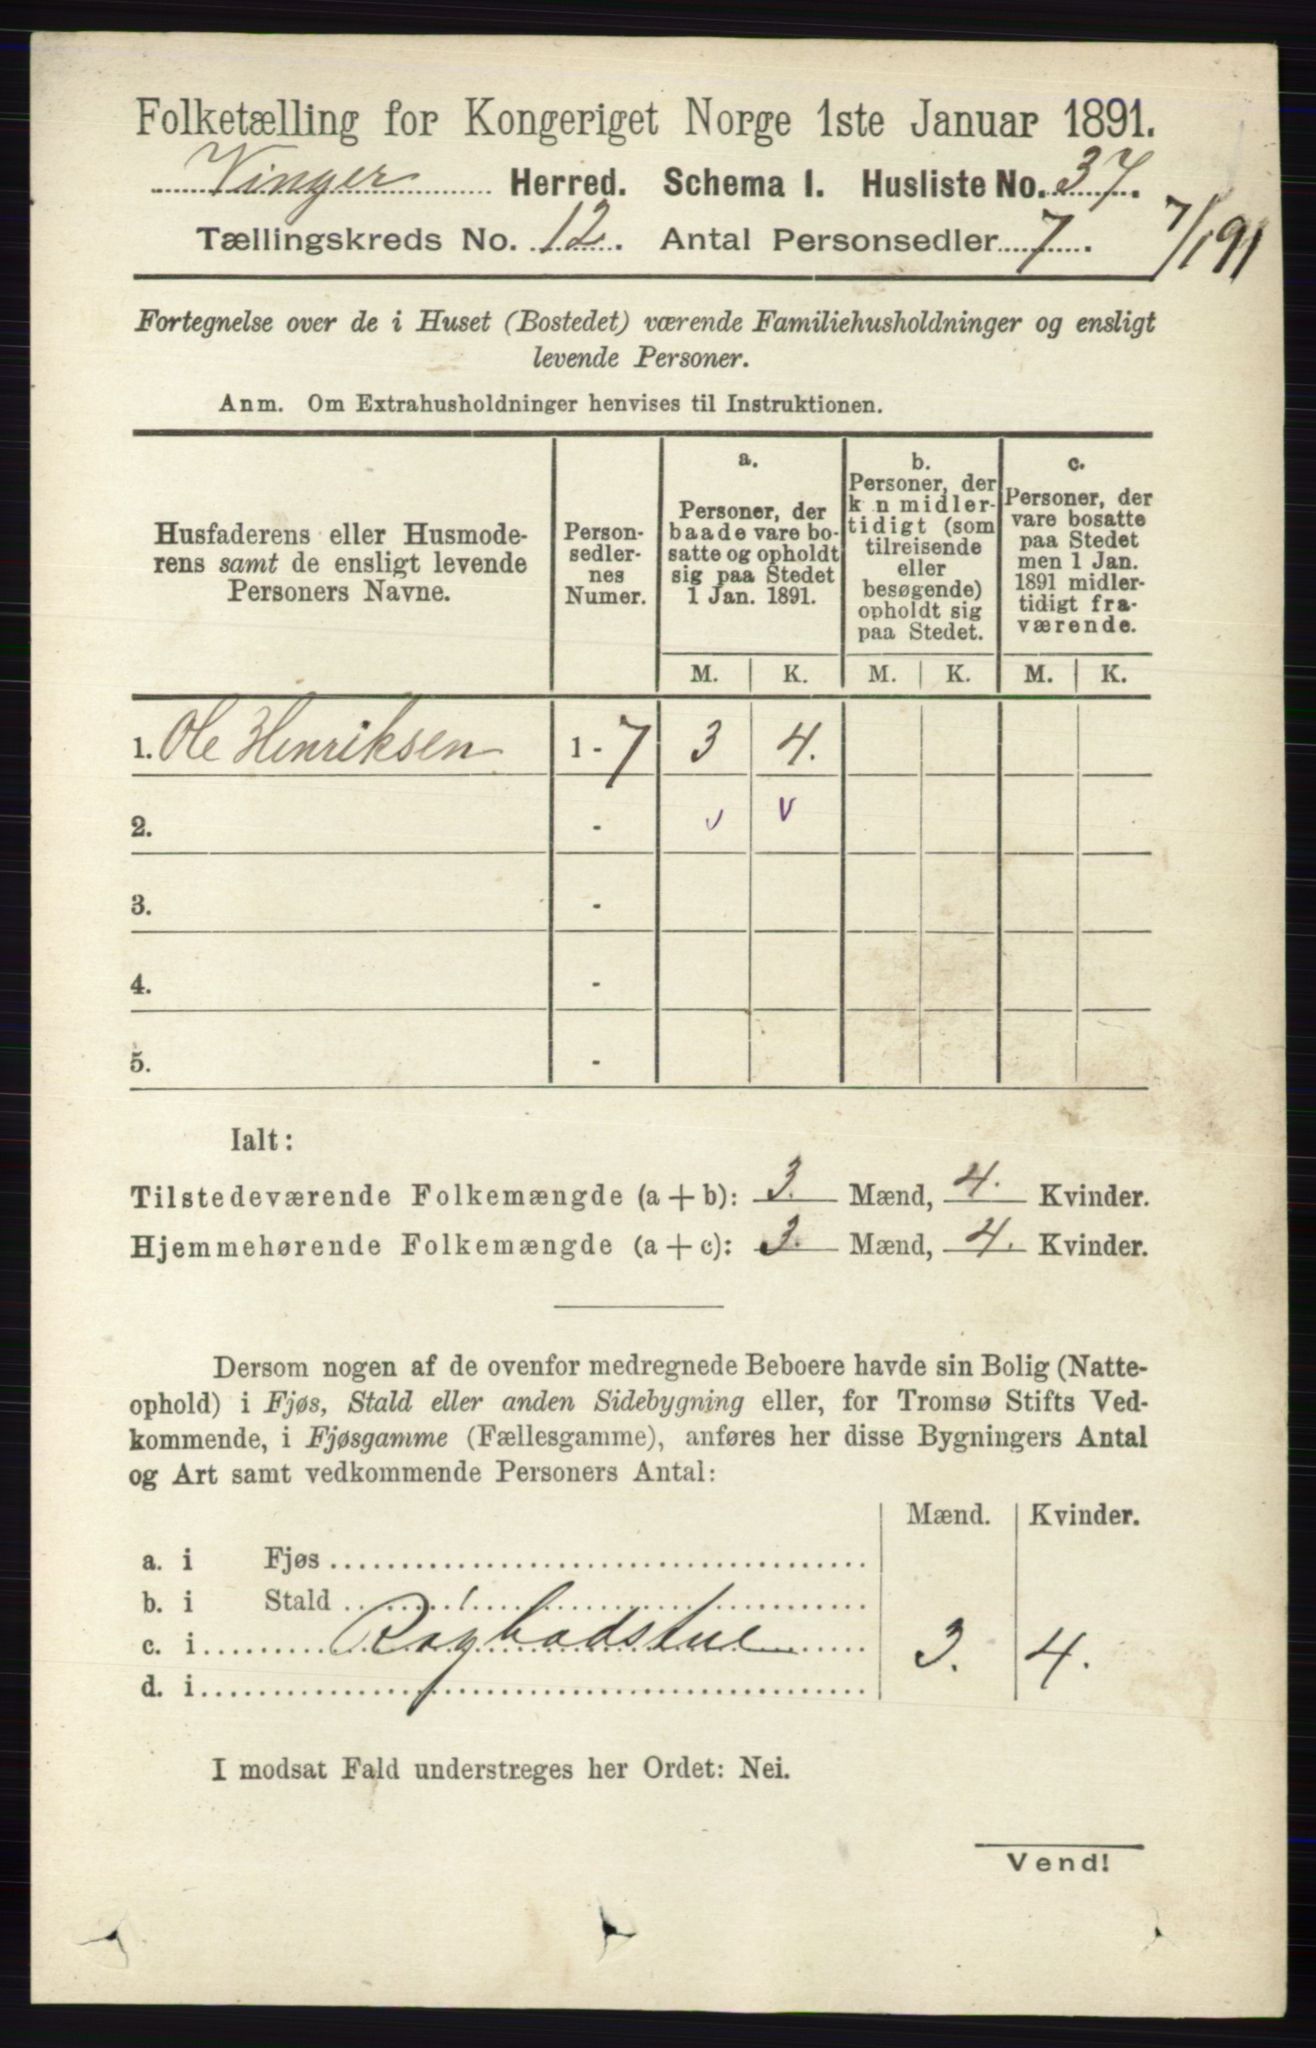 Folketælling for Kongeriget Norge 1ste Januar 1891.
Vinger Herred. Schema I. Husliste No. 37.
Tællingskreds No. 12. Antal Personsedler 7. 7/191
Fortegnelse over de i Huset (Bostedet) værende Familiehusholdninger og ensligt
levende Personer.
Anm. Om Extrahusholdninger henvises til Instruktionen.
Husfaderens eller Husmode-
rens samt de ensligt levende
Personers Navne.
Person-
sedler-
nes
Numer.
a.
Personer, der
baade vare bo-
satte og opholdt
sig paa Stedet
1 Jan. 1891.
b.
Personer, der
k n midler-
tidigt (som
tilreisende
eller
besøgende)
opholdt sig
paa Stedet.
c.
Personer, der
vare bosatte
paa Stedet
men 1 Jan.
1891 midler-
tidigt fra-
værende.
M. K. M. K. M. K.
1. Ole Henriksen 1 - 7 3 4.
2. - v v
3. -
4. -
5. -
Ialt:
Tilstedeværende Folkemængde (a + b): 3. Mænd, 4. Kvinder.
Hjemmehørende Folkemængde (a + c): 3. Mænd, 4. Kvinder.
Dersom nogen af de ovenfor medregnede Beboere havde sin Bolig (Natte-
ophold) i Fjøs, Stald eller anden Sidebygning eller, for Tromsø Stifts Ved-
kommende, i Fjøsgamme (Fællesgamme), anføres her disse Bygningers Antal
og Art samt vedkommende Personers Antal:
Mænd. Kvinder.
a. i Fjøs
b. i Stald
c. i Røgbadstue 3. 4.
d. i
I modsat Fald understreges her Ordet: Nei.
Vend!